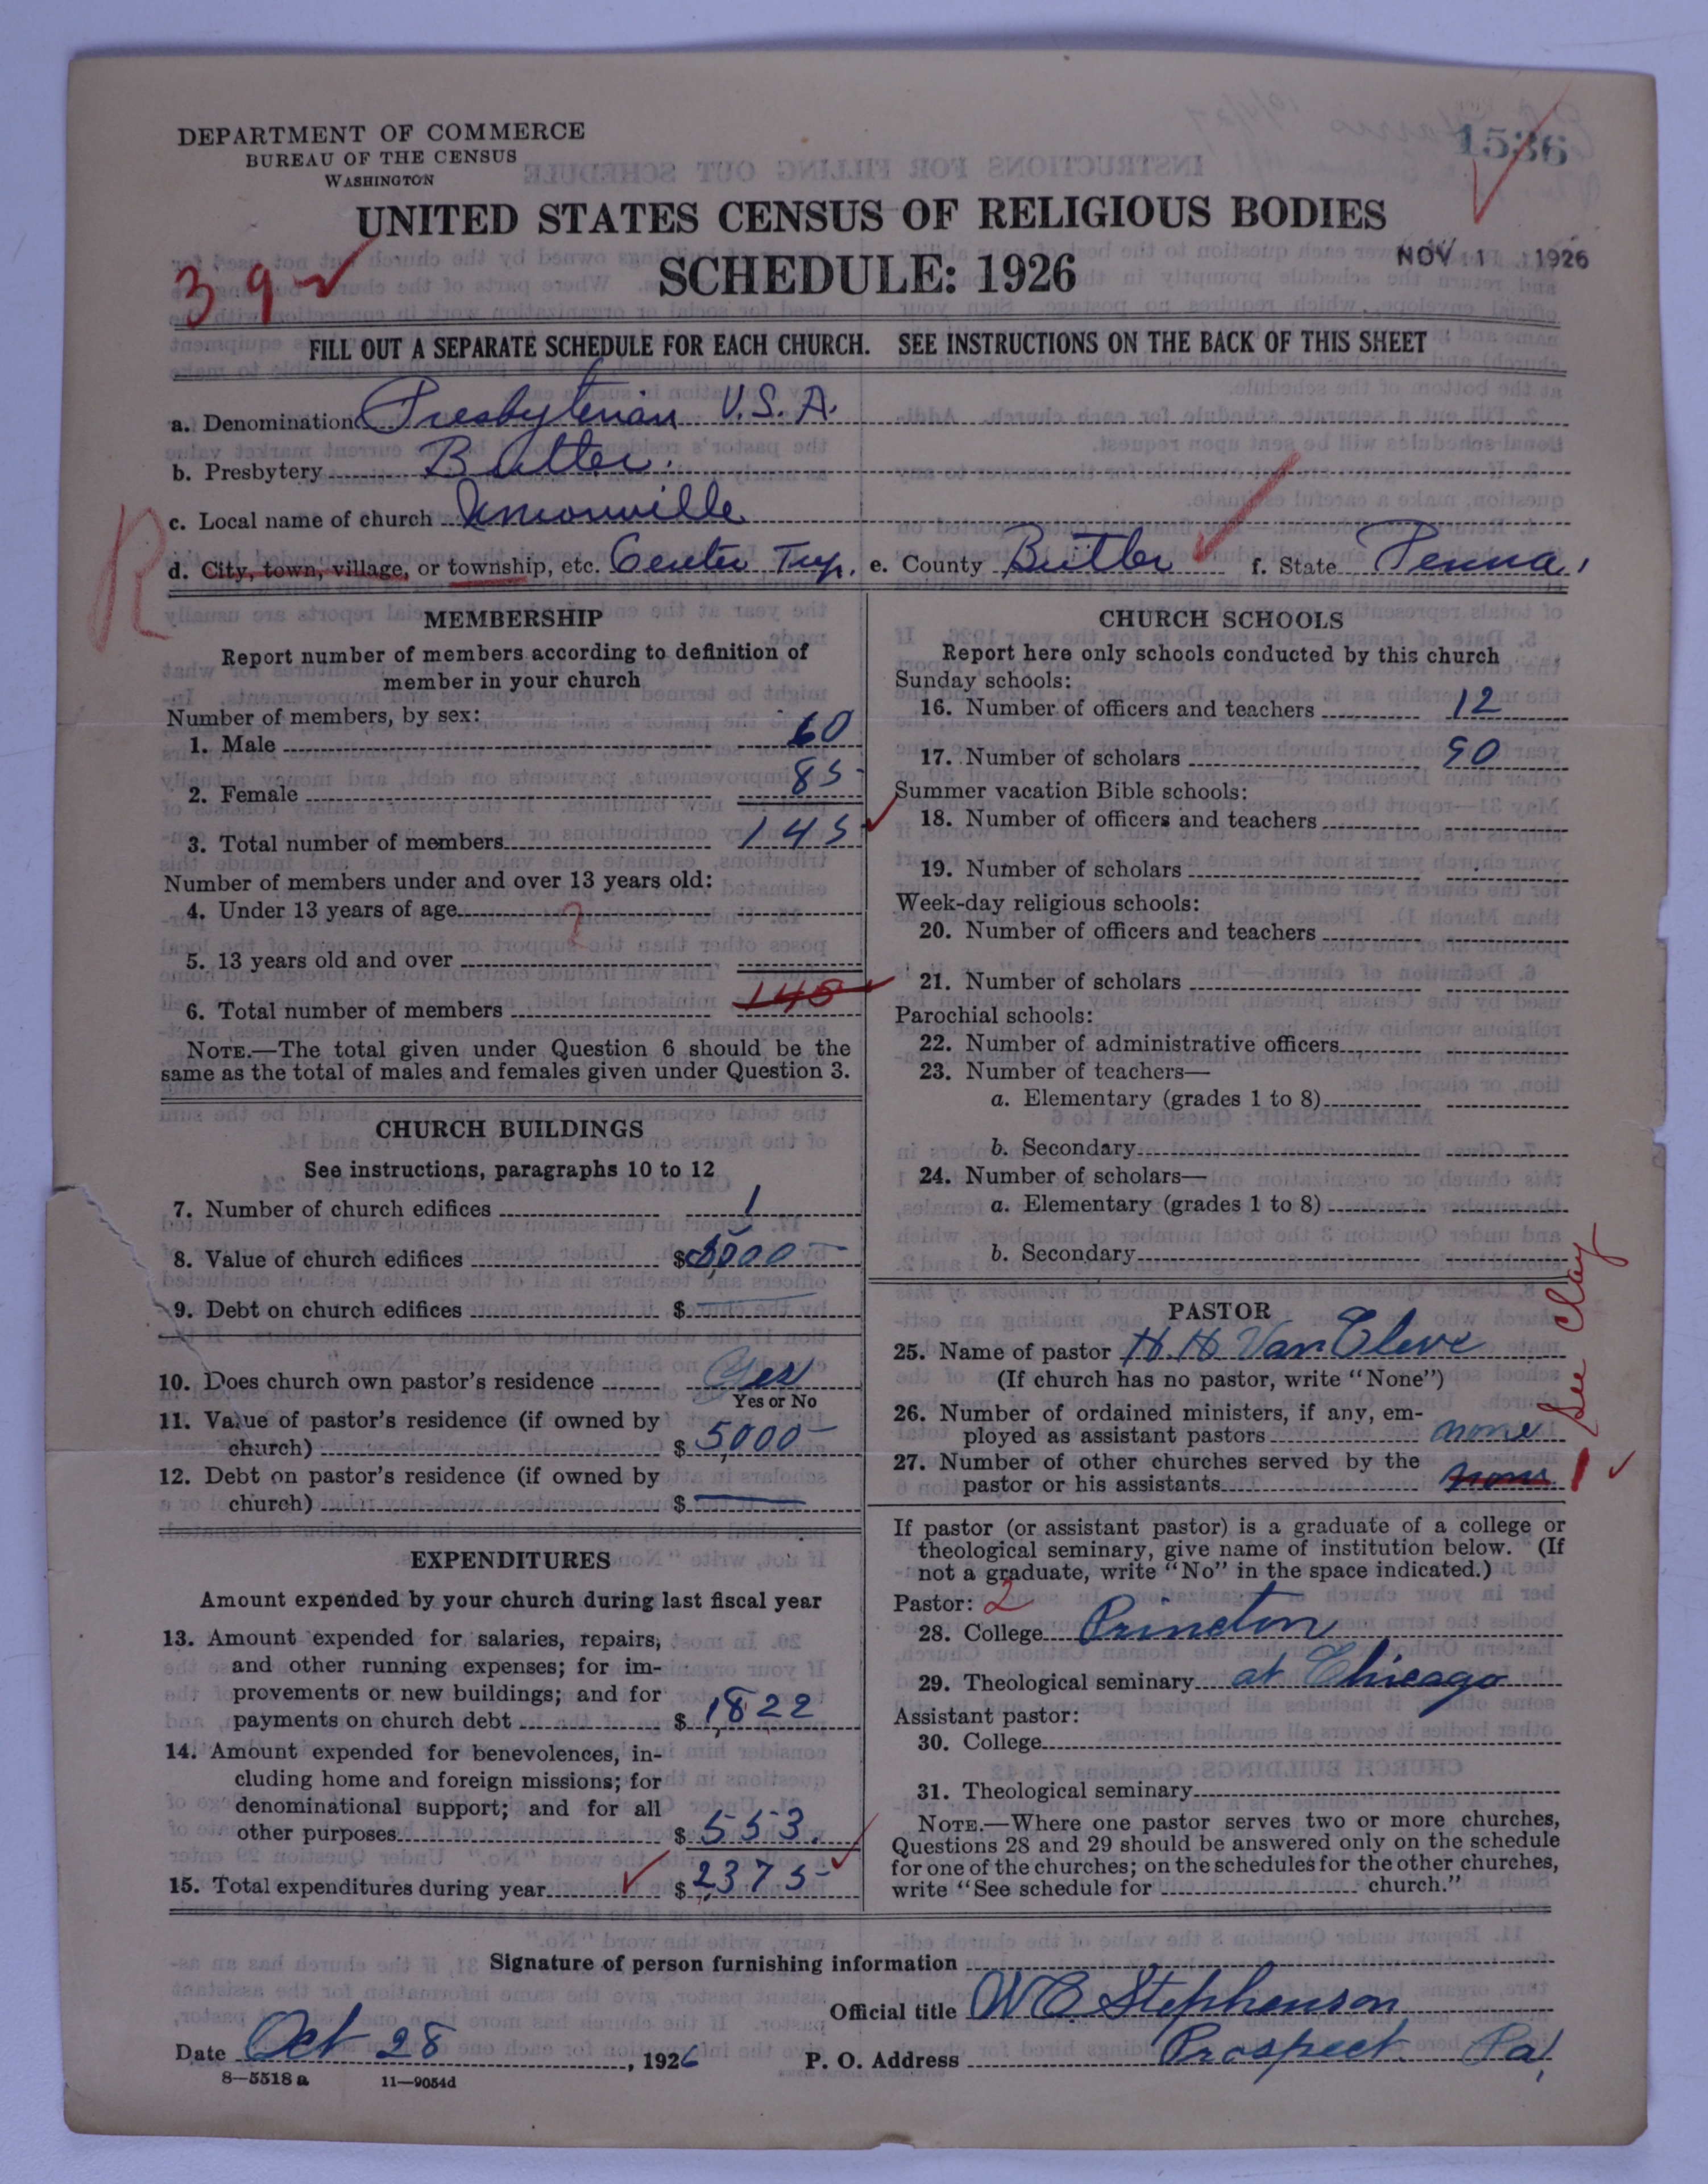 DEPARTMENT OF COMMERCE
BUREAU OF THE CENSUS
WASHINGTON
1536
UNITED STATES CENSUS OF RELIGIOUS BODIES
SCHEDULE: 1926
NOV 1 1926
39
FILL OUT A SEPARATE SCHEDULE FOR EACH CHURCH. SEE INSTRUCTIONS ON THE BACK OF THIS SHEET
a. Denomination Presbyterian U.S.A.
b. Presbytery Butler.
c. Local name of church Unionville
R
d. City, town, village, or township, etc. Center Twp. e. County Butler f. State Penna.
MEMBERSHIP
Report number of members according to definition of
member in your church
Number of members, by sex:
1. Male 60
2. Female 85
3. Total number of members 145
Number of members under and over 13 years old:
4. Under 13 years of age
?
5. 13 years old and over
6. Total number of members 145
NOTE.—The total given under Question 6 should be the
same as the total of males and females given under Question 3.
CHURCH BUILDINGS
See instructions, paragraphs 10 to 12
7. Number of church edifices 1
8. Value of church edifices $ 5000
9. Debt on church edifices $
10. Does church own pastor's residence Yes
Yes or No
11. Value of pastor's residence (if owned by
church) $ 5000
12. Debt on pastor's residence (if owned by
church) $
EXPENDITURES
Amount expended by your church during last fiscal year
13. Amount expended for salaries, repairs,
and other running expenses; for im-
provements or new buildings; and for
payments on church debt $ 1,822
14. Amount expended for benevolences, in-
cluding home and foreign missions; for
denominational support; and for all
other purposes $ 553.
15. Total expenditures during year $ 2,375
CHURCH SCHOOLS
Report here only schools conducted by this church
Sunday schools:
16. Number of officers and teachers 12
17. Number of scholars 90
Summer vacation Bible schools:
18. Number of officers and teachers
19. Number of scholars
Week-day religious schools:
20. Number of officers and teachers
21. Number of scholars
Parochial schools:
22. Number of administrative officers
23. Number of teachers—
a. Elementary (grades 1 to 8)
b. Secondary
24. Number of scholars—
a. Elementary (grades 1 to 8)
b. Secondary
PASTOR
25. Name of pastor H. H. Van Cleve
(If church has no pastor, write "None")
26. Number of ordained ministers, if any, em-
ployed as assistant pastors none
27. Number of other churches served by the
pastor or his assistants none 1
See Clay
If pastor (or assistant pastor) is a graduate of a college or
theological seminary, give name of institution below. (If
not a graduate, write "No" in the space indicated.)
Pastor: 2
28. College Princton
29. Theological seminary at Chicago
Assistant pastor:
30. College
31. Theological seminary
NOTE.—Where one pastor serves two or more churches,
Questions 28 and 29 should be answered only on the schedule
for one of the churches; on the schedules for the other churches,
write "See schedule for church."
Signature of person furnishing information
Official title W C Stephenson
Date Oct 28, 1926 P. O. Address Prospect Pa,
8—5518 a 11—9054d